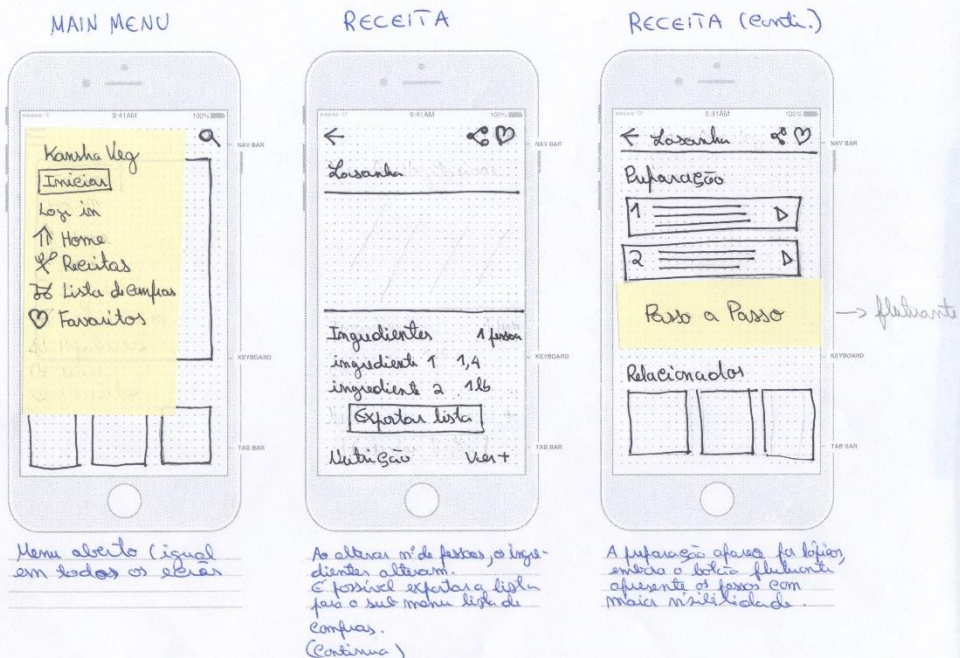 MAIN MENU
9:41AM
100%
NAV BAR
Kansha Veg
Iniciar
Log in
Home
Receitas
Lista de Compras
Favoritos
KEYBOARD
TAB BAR
Menu aberto (igual
em todos os ecrãs
RECEITA
9:41AM
100%
NAV BAR
Lasanha
Ingredientes 1 pessoa
KEYBOARD
ingrediente 1 1,4
ingrediente 2 1lb
Exportar lista
TAB BAR
Nutrição Ver+
Ao alterar nº de pessoas, os ingre-
dientes alteram.
É possível exportar a lista
para o sub menu lista de
compras.
(Continua)
RECEITA (conti.)
9:41AM
100%
Lasanha
NAV BAR
Preparação
1
2
Passo a Passo
-> flutuante
KEYBOARD
Relacionados
TAB BAR
A preparação aparece por tópicos,
embora o botão flutuante,
apresente os passos com
maior visibilidade.